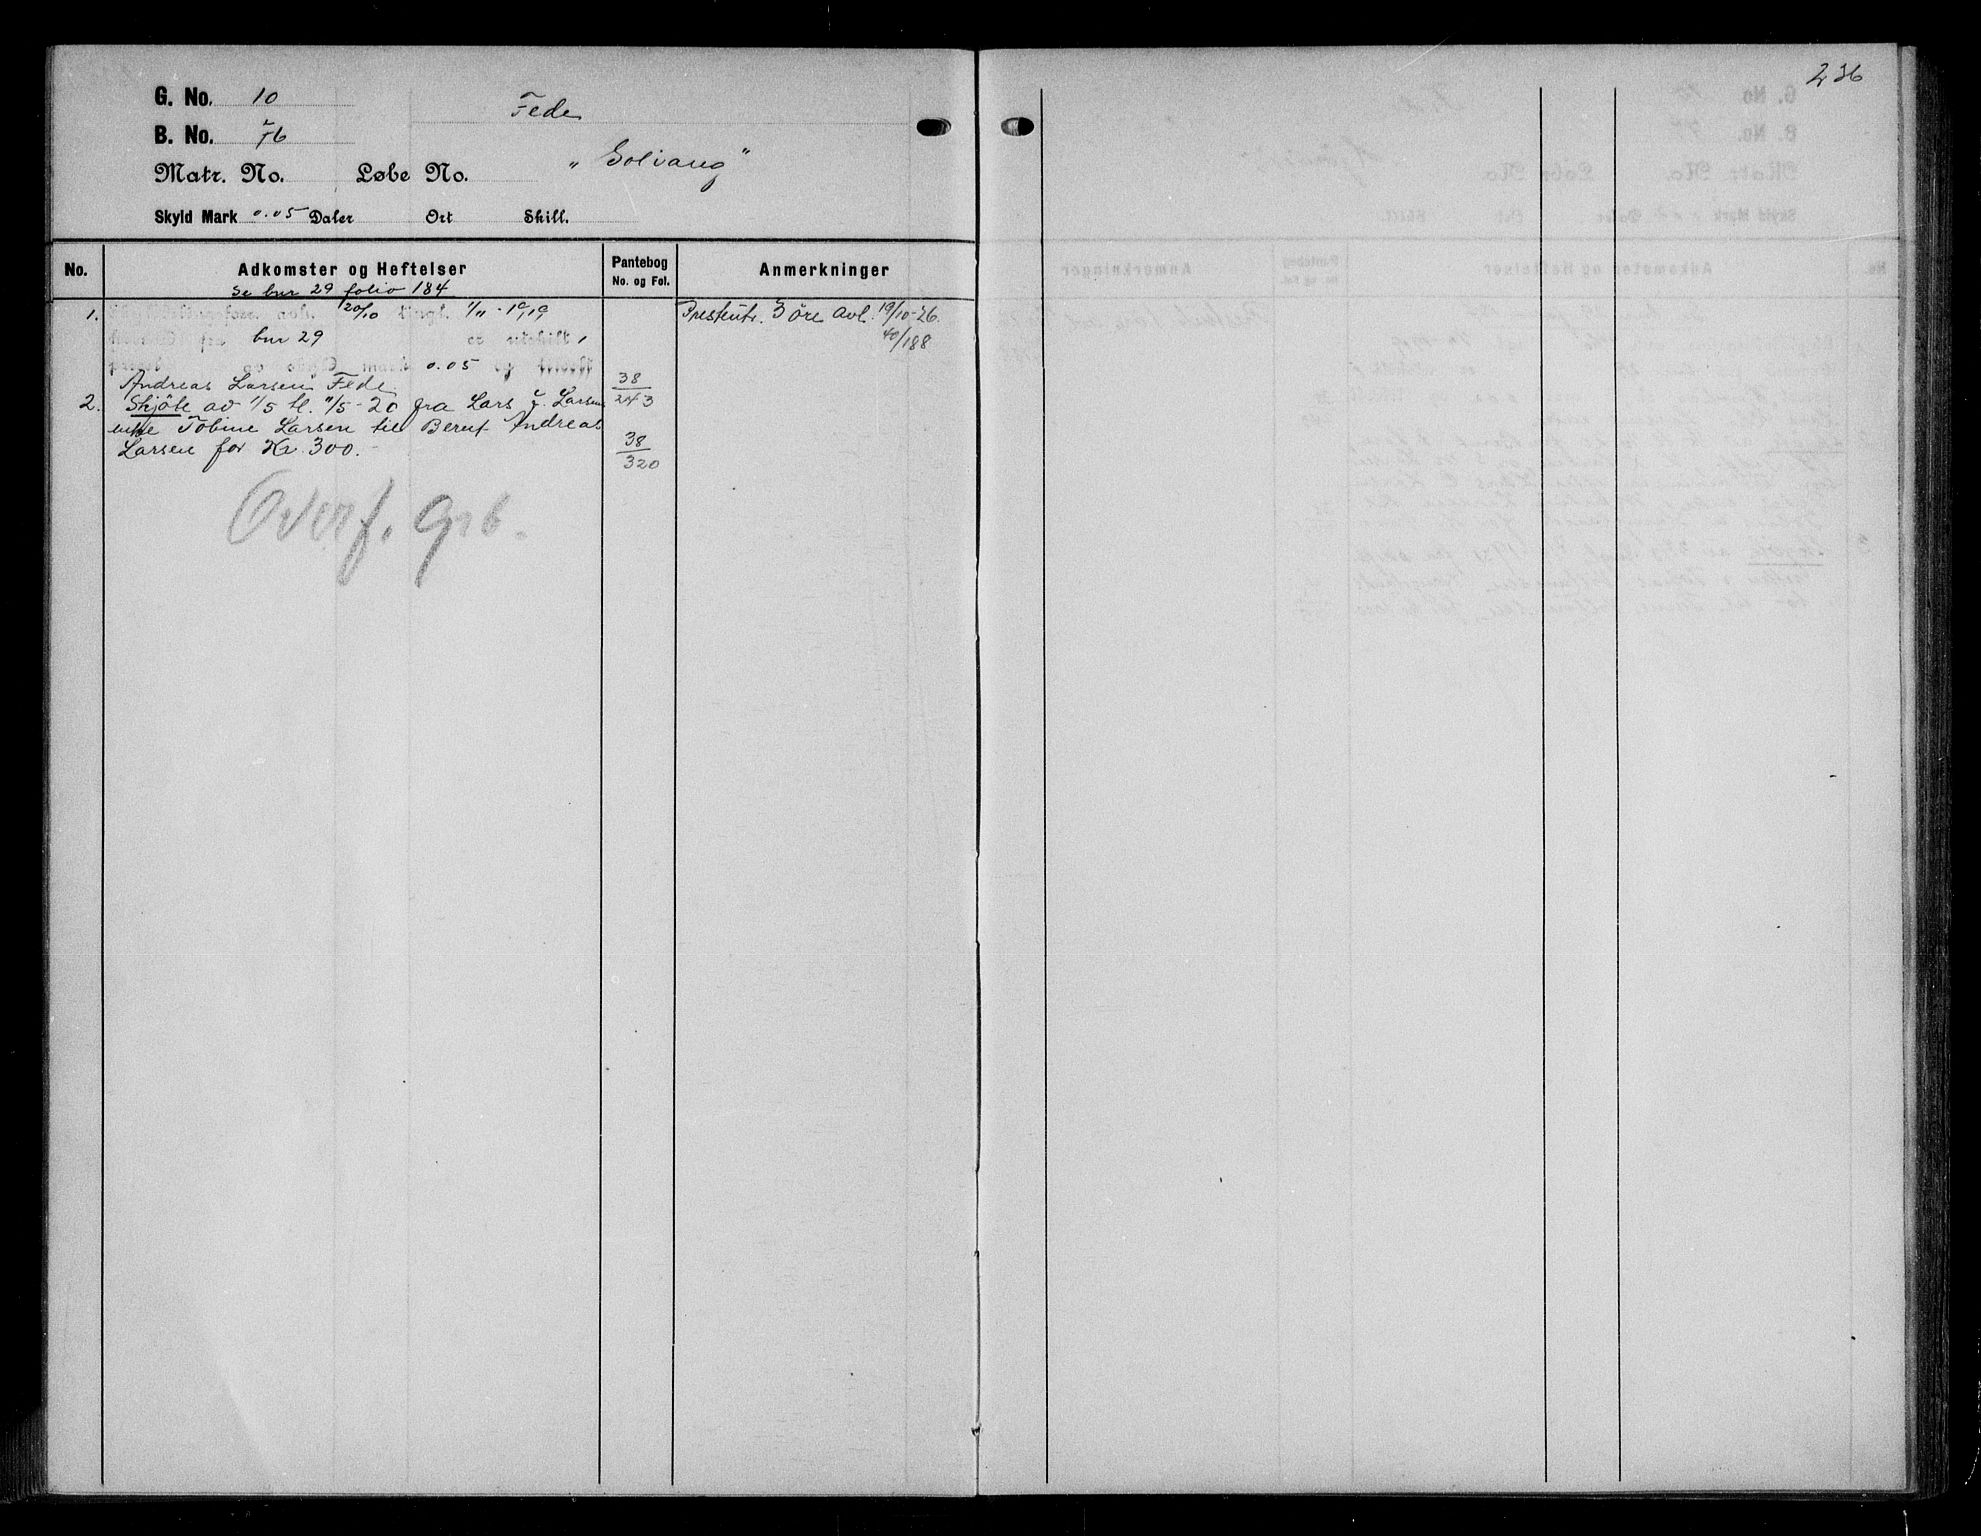 236
G. No. 10
Fede
B. No. 76
„Solvang"
Matr. No. Løbe No.
Skyld Mark 0.05 Daler Ort Skill.
No. Adkomster og Heftelser Pantebog No. og Fol. Anmerkninger
Se bnr 29 folio 184
1. avh. 20/10 tingl. 1/11 - 1919 Prestentr. 3 öre avl. 19/10-26.
fra bnr 29 er utskilt, 40/188
mark 0.05 og
Andreas Larsen Fede. 38/243
2. Skjöte av 1/5 tl. 11/5-20 fra Lars J. Larsens
enke Tobine Larsen til Bernt Andreas
Larsen for Kr. 300.- 38/320
Overf. Grb.